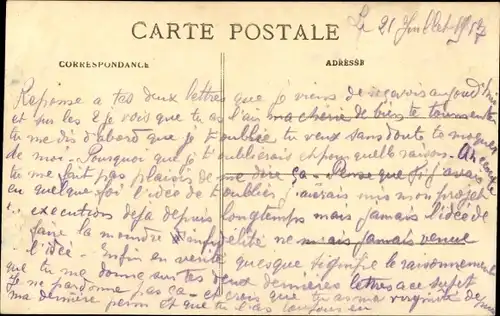 Le 21 Juillet
CARTE POSTALE
CORRESPONDANCE
ADRESSE
Reponse a tes deux lettres que je viens de recevoir aujourd'hui
et sur les 2 je vois que tu as l'air ma cherie de bien te tourmenter
tu me dis d'abord que je t'oublie tu veux sans doute te moquer
de moi. Pourquoi que je t'oublierais et pour quelle raison.
tu me fait pas plaisir de me dire ça. Pense que si j'avais
en quelque foi l'idée de t'oublier j'aurais mis mon projet
execution deja depuis longtemps mais jamais l'idée de
faire la moindre infidélité ne mais jamais venue
l'idée. Enfin en verité quesque signifie le raisonnement
que tu me donne sur tes deux dernières lettres a ce sujet
Je ne pardonne pas ça et crois que tu as ma
ma dernière et que tu l'as toujours eu